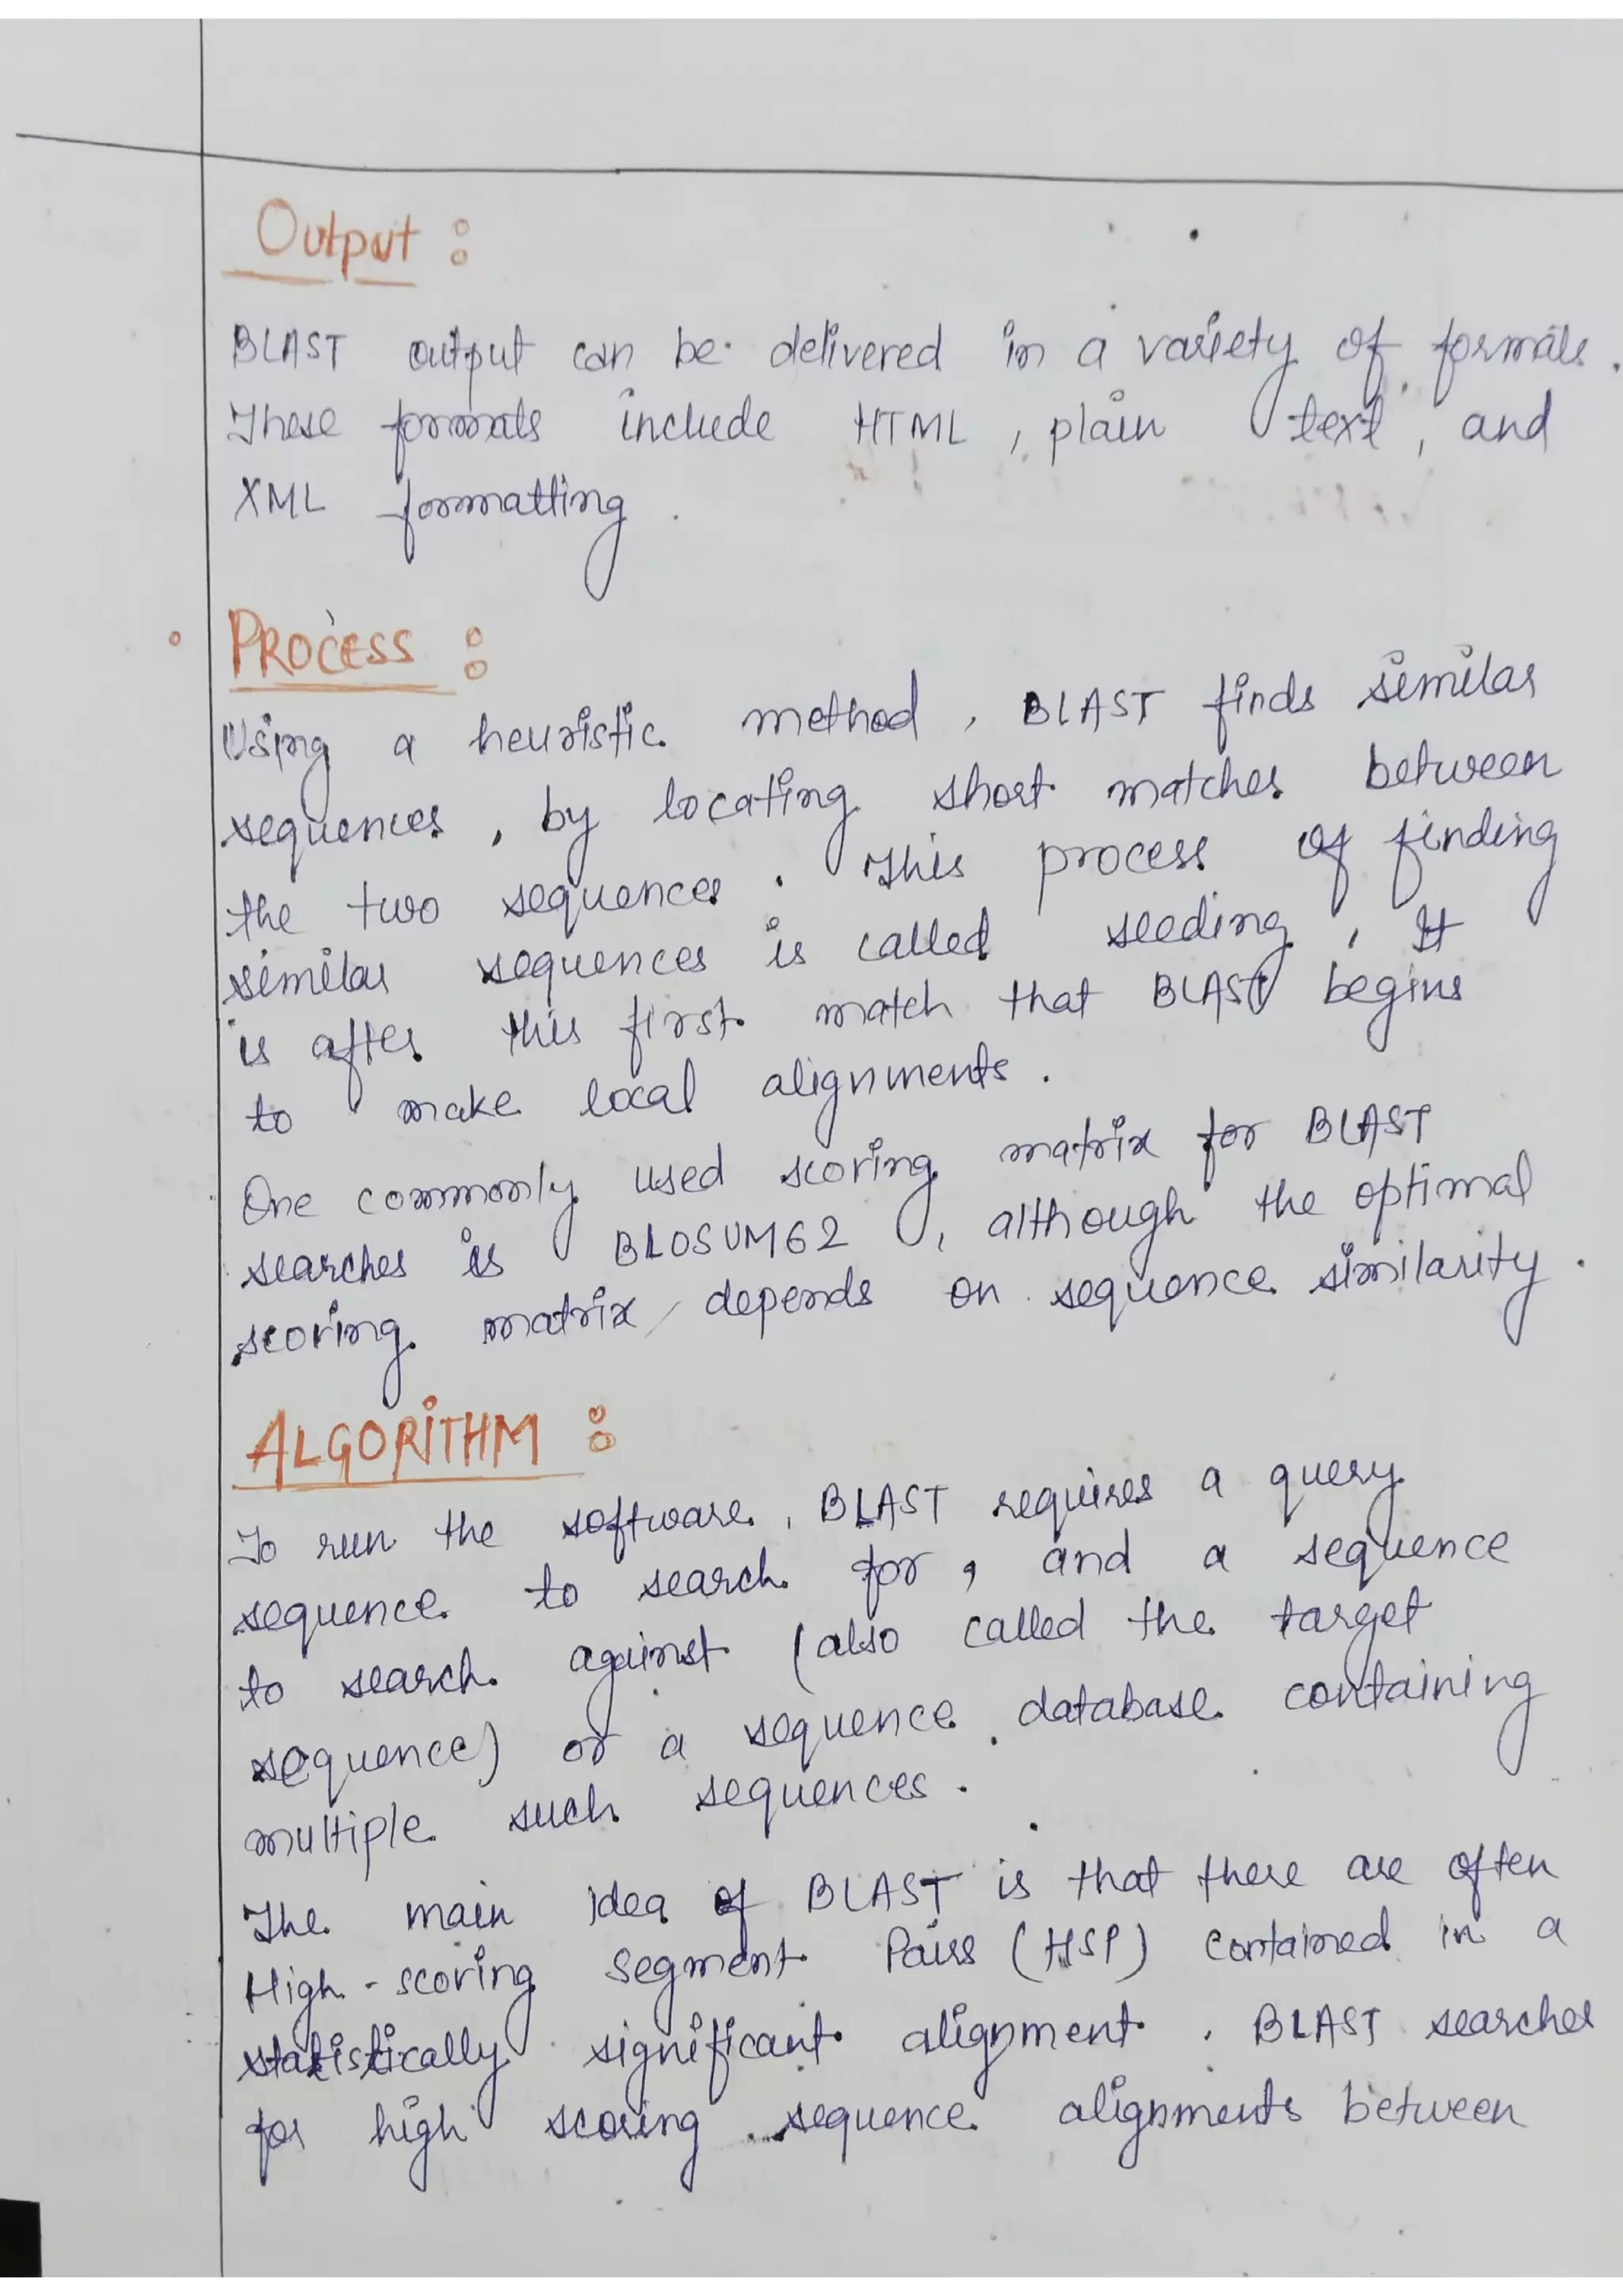 Output :
BLAST output can be delivered in a variety of formats.
These formats include HTML, plain text, and
XML formatting.
PROCESS :
Using a heuristic method, BLAST finds similar
sequences, by locating short matches between
the two sequences. This process of finding
similar sequences is called seeding, It
is after this first match that BLAST begins
to make local alignments.
One commonly used scoring matrix for BLAST
searches is BLOSUM62, although the optimal
scoring matrix depends on sequence similarity.
ALGORITHM :
To run the software, BLAST requires a query
sequence to search for, and a sequence
to search against (also called the target
sequence) or a sequence database containing
multiple such sequences.
The main idea of BLAST is that there are often
High-scoring Segment Pairs (HSP) contained in a
statistically significant alignment. BLAST searches
for high scoring sequence alignments between